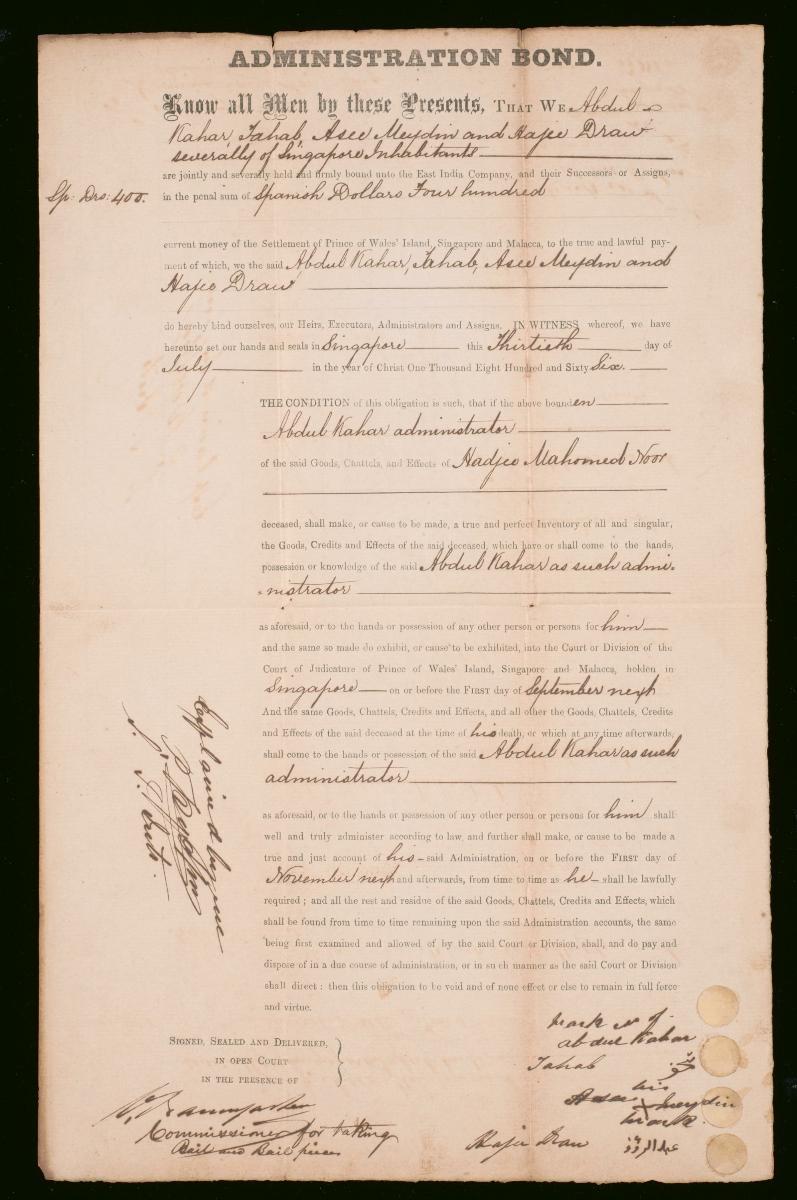 ADMINISTRATION BOND.
Know all Men by these Presents, THAT WE Abdul
Kahar, Jahab, Asee Meydin and Hajee Draw
severally of Singapore Inhabitants
are jointly and severally held and firmly bound unto the East India Company, and their Successors or Assigns,
Sp: Drs: 400. in the penal sum of Spanish Dollars Four hundred
current money of the Settlement of Prince of Wales' Island, Singapore and Malacca, to the true and lawful pay-
ment of which, we the said Abdul Kahar, Jahab, Asee Meydin and
Hajee Draw
do hereby bind ourselves, our Heirs, Executors, Administrators and Assigns, IN WITNESS whereof, we have
hereunto set our hands and seals in Singapore this Thirtieth day of
July in the year of Christ One Thousand Eight Hundred and Sixty Six.
THE CONDITION of this obligation is such, that if the above bounden
Abdul Kahar administrator
of the said Goods, Chattels, and Effects of Hadjee Mahomed Noor
deceased, shall make, or cause to be made, a true and perfect Inventory of all and singular,
the Goods, Credits and Effects of the said deceased, which have or shall come to the hands,
possession or knowledge of the said Abdul Kahar as such admi-
nistrator
as aforesaid, or to the hands or possession of any other person or persons for him
and the same so made do exhibit, or cause to be exhibited, into the Court or Division of the
Court of Judicature of Prince of Wales' Island, Singapore and Malacca, holden in
Singapore on or before the FIRST day of September next
And the same Goods, Chattels, Credits and Effects, and all other the Goods, Chattels, Credits
and Effects of the said deceased at the time of his death, or which at any time afterwards,
shall come to the hands or possession of the said Abdul Kahar as such
administrator
as aforesaid, or to the hands or possession of any other person or persons for him shall
well and truly administer according to law, and further shall make, or cause to be made a
true and just account of his said Administration, on or before the FIRST day of
November next and afterwards, from time to time as he shall be lawfully
required; and all the rest and residue of the said Goods, Chattels, Credits and Effects, which
shall be found from time to time remaining upon the said Administration accounts, the same
being first examined and allowed of by the said Court or Division, shall, and do pay and
dispose of in a due course of administration, or in such manner as the said Court or Division
shall direct: then this obligation to be void and of none effect or else to remain in full force
and virtue.
Explained by me
SIGNED, SEALED AND DELIVERED,
IN OPEN COURT
IN THE PRESENCE OF
Commissioner for taking
Bail and Bail pieces
mark of
abdul Kahar
Jahab
his
Asee Meydin
mark.
Hajee Draw